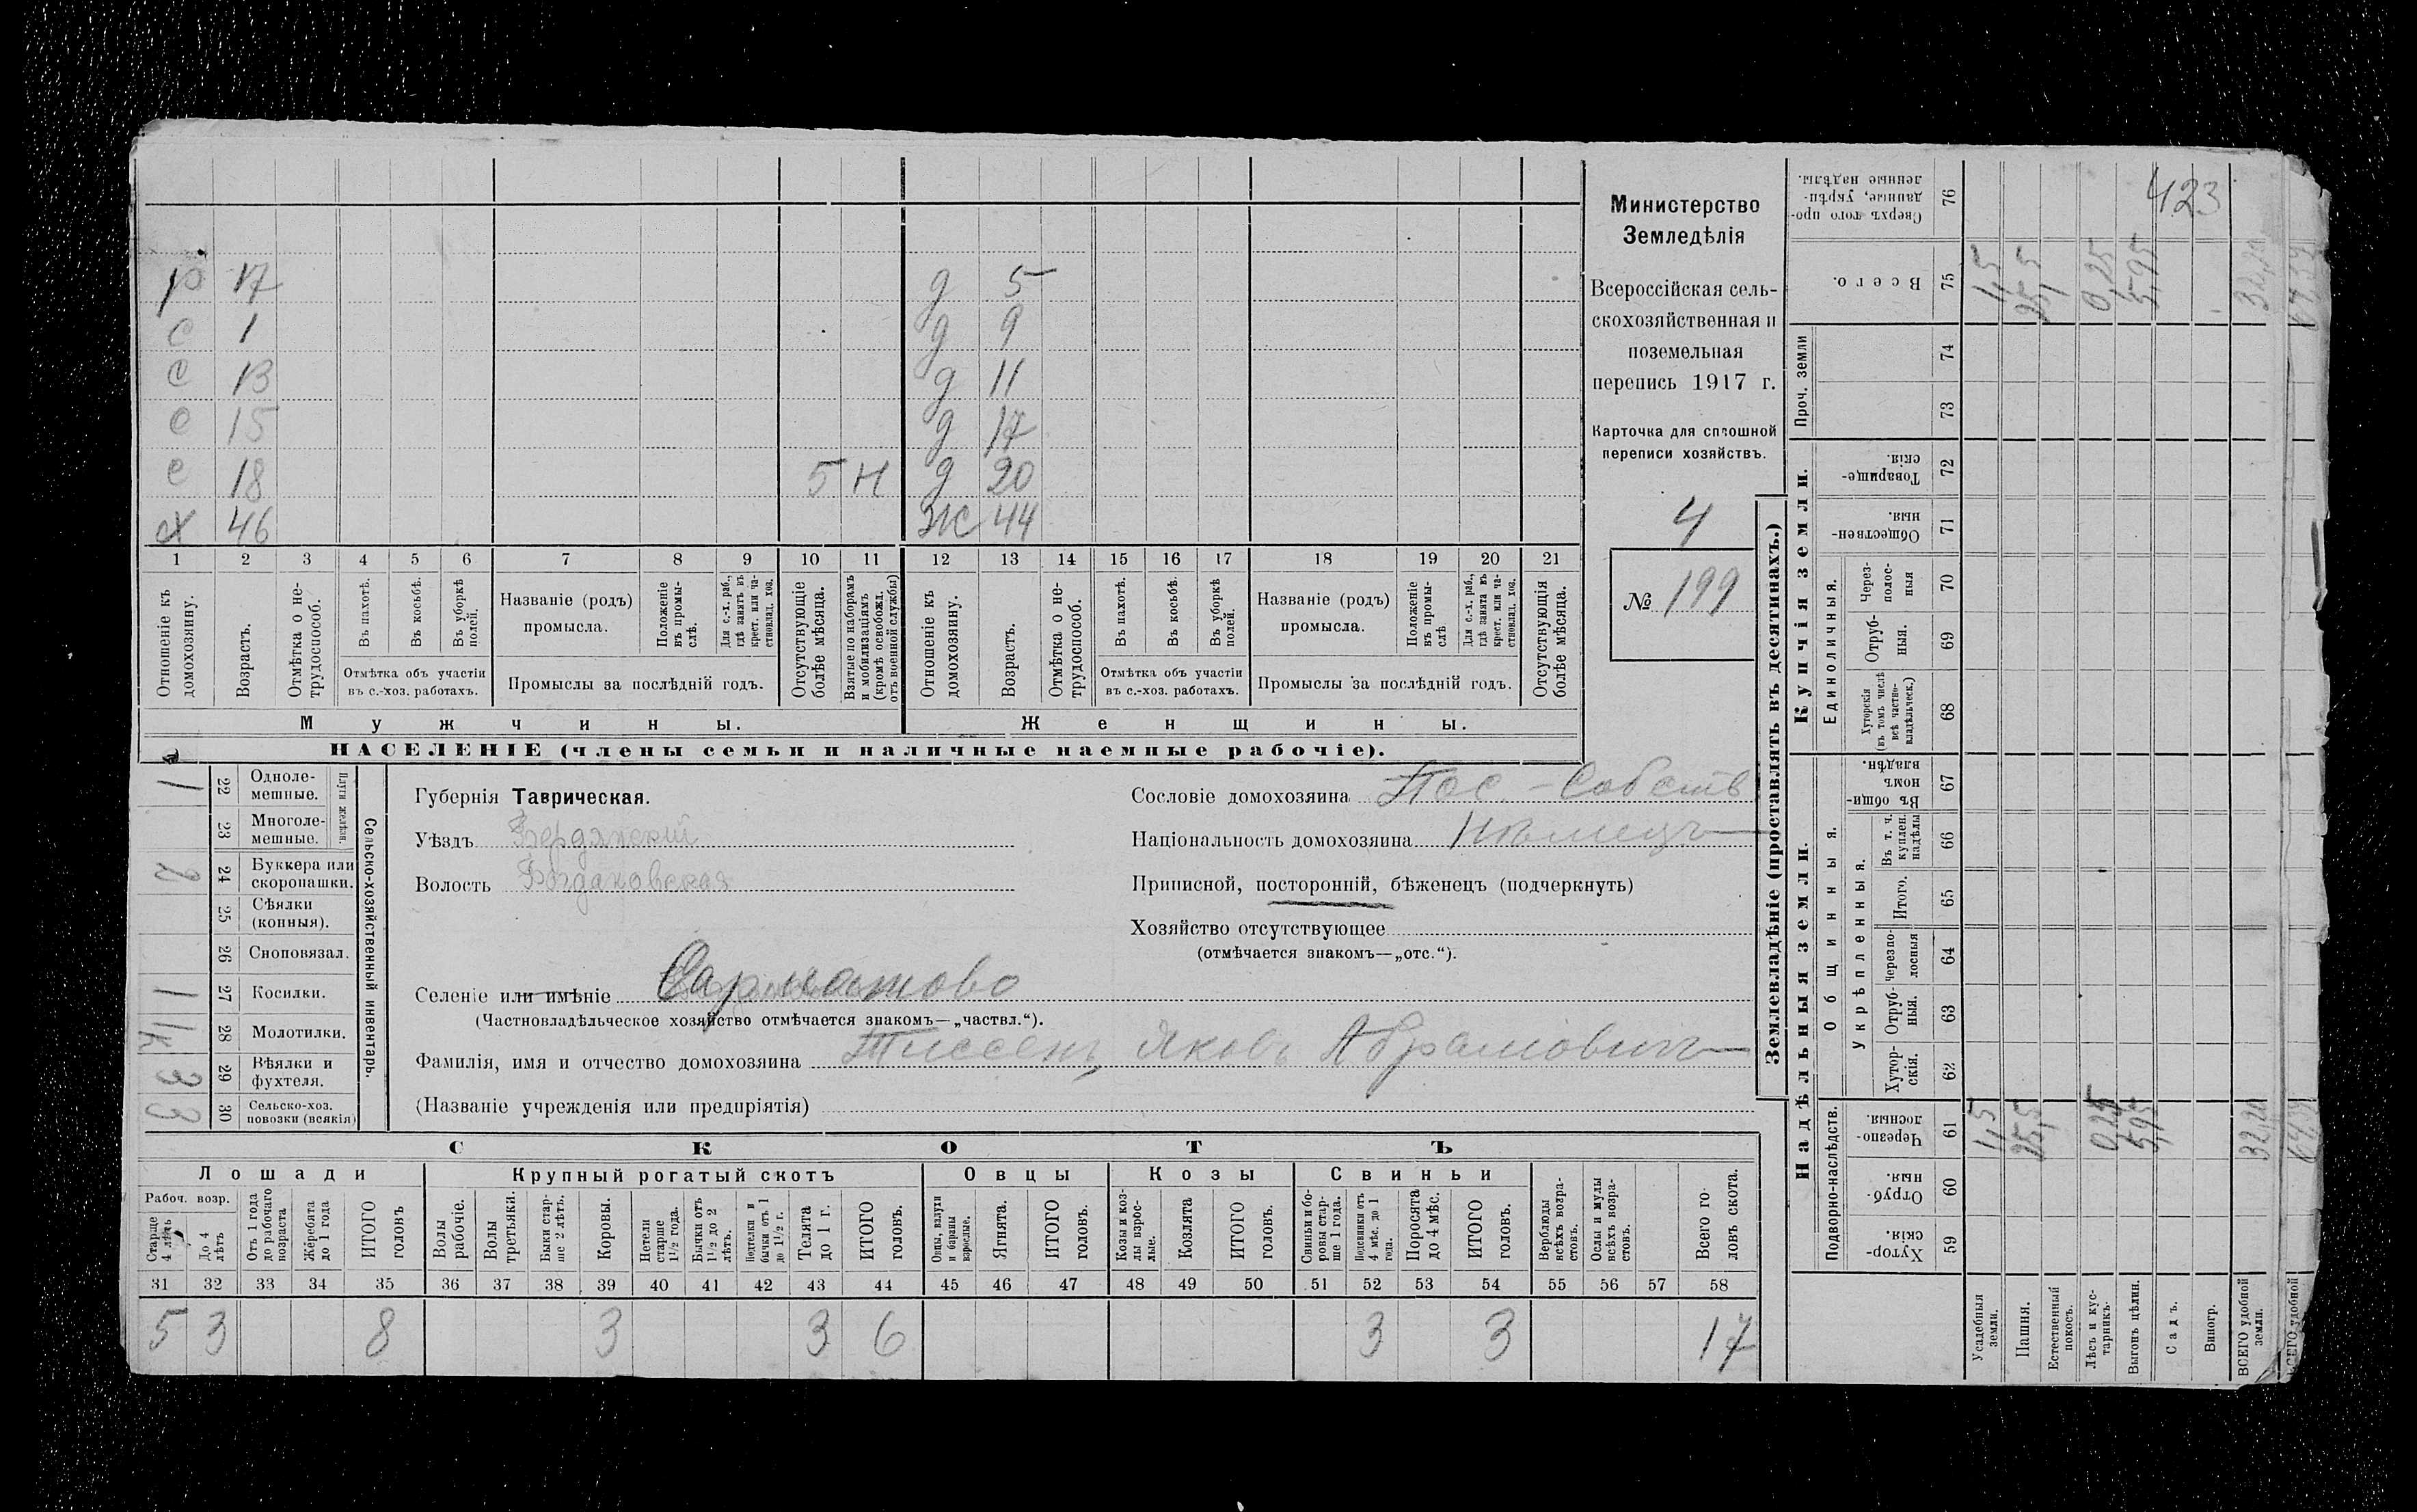 423
р 17 д 5
с 1 д 9
с 13 д 11
с 15 д 17
с 18 5 н д 20
х 46 ж 44
1 2 3 4 5 6 7 8 9 10 11 12 13 14 15 16 17 18 19 20 21
Отношеніе къ домохозяину.
Возрастъ.
Отмѣтка о не-трудоспособ.
Въ пахотѣ.
Въ косьбѣ.
Въ уборкѣ полей.
Отмѣтка объ участіи
въ с.-хоз. работахъ.
Названіе (родъ)
промысла.
Положеніе въ промы-слѣ.
Для с.-х. раб., гдѣ занятъ въ крест. или ча-стновлад. хоз.
Промыслы за послѣдній годъ.
Отсутствующіе болѣе мѣсяца.
Взятые по наборамъ и мобилизаціямъ (кромѣ освобожд. отъ военной службы)
Отношеніе къ домохозяину.
Возрастъ.
Отмѣтка о не-трудоспособ.
Въ пахотѣ.
Въ косьбѣ.
Въ уборкѣ полей.
Отмѣтка объ участіи
въ с.-хоз. работахъ.
Названіе (родъ)
промысла.
Положеніе въ промы-слѣ
Для с.-х. раб., гдѣ занята въ крест. или ча-стновлад. хоз.
Промыслы за послѣдній годъ.
Отсутствующія болѣе мѣсяца.
Мужчины.
Женщины.
НАСЕЛЕНІЕ (члены семьи и наличные наемные рабочіе).
Министерство
Земледѣлія
Всероссійская сель-
скохозяйственная и
поземельная
перепись 1917 г.
Карточка для сплошной
переписи хозяйствъ.
4
№ 199
Сельско-хозяйственный инвентарь.
Плуги желѣзн.
1 22 Одноле-мешные.
23 Многоле-мешные.
2 24 Буккера или скоропашки.
25 Сѣялки (конныя).
26 Сноповязал.
1 27 Косилки.
1к 28 Молотилки.
3 29 Вѣялки и фухтеля.
3 30 Сельско-хоз. повозки (всякія)
Губернія Таврическая.
Уѣздъ Бердянскій
Волость Богдановская
Сословіе домохозяина Пос.-Собств
Національность домохозяина Нѣмецъ
Приписной, посторонній, бѣженецъ (подчеркнуть)
Хозяйство отсутствующее
(отмѣчается знакомъ—„отс.“).
Селеніе или имѣніе Сарматово
(Частновладѣльческое хозяйство отмѣчается знакомъ—„частвл.“).
Фамилія, имя и отчество домохозяина Тиссенъ, Яковъ Абрамовичъ
(Названіе учрежденія или предпріятія)
СКОТЪ
Лошади
Крупный рогатый скотъ
Овцы
Козы
Свиньи
Рабоч. возр.
Старше 4 лѣтъ
До 4 лѣтъ
Отъ 1 года до рабочаго возраста
Жеребята до 1 года
ИТОГО головъ
Волы рабочіе.
Волы третьяки.
Быки стар-ше 2 лѣтъ.
Коровы.
Нетели старше 1½ года.
Бычки отъ 1½ до 2 лѣтъ.
Подтелки и бычки отъ 1 до 1½ г.
Телята до 1 г.
ИТОГО головъ.
Овцы, валухи и бараны взрослые.
Ягнята.
ИТОГО головъ.
Козы и коз-лы взрос-лые.
Козлята
ИТОГО головъ.
Свиньи и бо-ровы стар-ше 1 года.
Подсвинки отъ 4 мѣс. до 1 года.
Поросята до 4 мѣс.
ИТОГО головъ.
Верблюды всѣхъ возра-стовъ.
Ослы и мулы всѣхъ возра-стовъ.
Всего го-ловъ скота.
31 32 33 34 35 36 37 38 39 40 41 42 43 44 45 46 47 48 49 50 51 52 53 54 55 56 57 58
5 3 8 3 3 6 3 3 17
Землевладѣніе (проставлять въ десятинахъ.)
Надѣльныя земли.
Купчія земли.
Проч. земли
Подворно-наслѣдств.
Общинныя.
Укрѣпленныя.
Единоличныя.
Сверхъ того про-данные, укрѣп-ленные надѣлы. 76
Всего. 75 1,5 25,5 0,25 5,95 32,20
74
73
Товарище-скія. 72
Обществен-ныя. 71
Через-полос-ныя 70
Отруб-ныя. 69
Хуторскія (въ томъ числѣ всѣ частно-владѣльческ.) 68
Въ общи-номъ владѣн. 67
Въ т. ч. куплен. надѣлы 66
Итого. 65
Черезпо-лосныя 64
Отруб-ныя. 63
Хутор-скія. 62
Черезпо-лосныя. 61 1,5 25,5 0,25 5,95 32,20
Отруб-ныя. 60
Хутор-скія. 59
Усадебныя земли.
Пашня.
Естественный покосъ.
Лѣсъ и кус-тарникъ.
Выгонъ цѣлин.
Садъ.
Виногр.
ВСЕГО удобной земли.